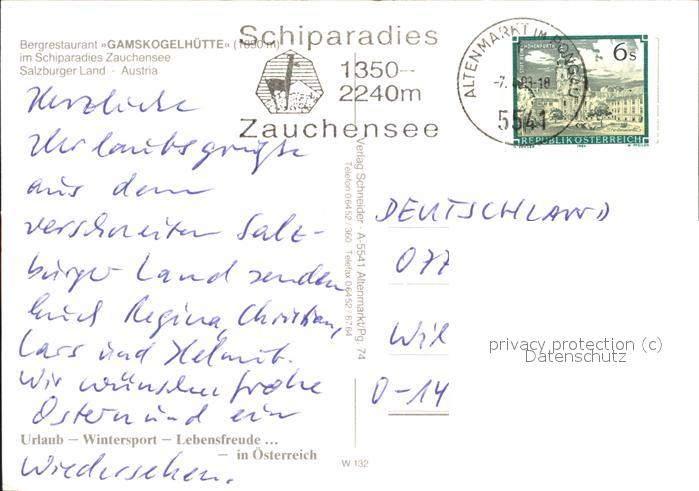 Bergrestaurant »GAMSKOGELHÜTTE« (1890 m)
im Schiparadies Zauchensee
Salzburger Land · Austria
Schiparadies
1350–
2240m
Zauchensee
ALTENMARKT IM PONGAU
5541
6s
REPUBLIK ÖSTERREICH
Herzliche
Urlaubsgrüße
aus dem
verschneiten Salz-
burger Land senden
Euch Regina, Christian,
Lars und Helmut.
Wir wünschen frohe
Ostern und ein
Wiedersehen.
Urlaub – Wintersport – Lebensfreude ...
– in Österreich
Verlag Schneider · A-5541 Altenmarkt/Pg. 74
Telefon 06452 / 360 · Telefax 06452 / 6764
W 132
DEUTSCHLAND
Wil
O-14
privacy protection (c)
Datenschutz